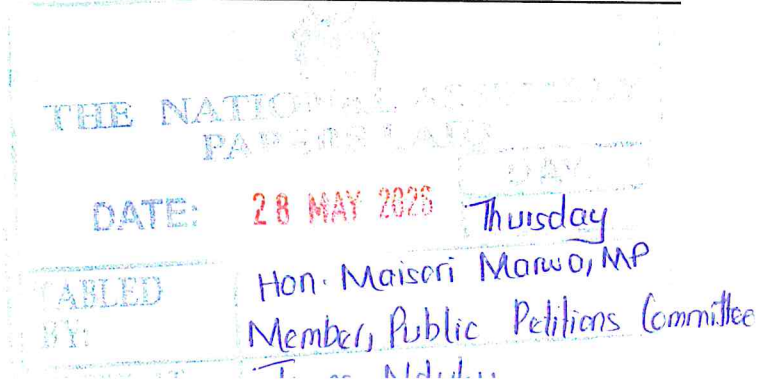 THE NATIONAL ASSEMBLY
PAPERS LAID
DAY
DATE: 28 MAY 2026 Thursday
TABLED Hon. Maisori Marwa, MP
BY: Member, Public Petitions Committee